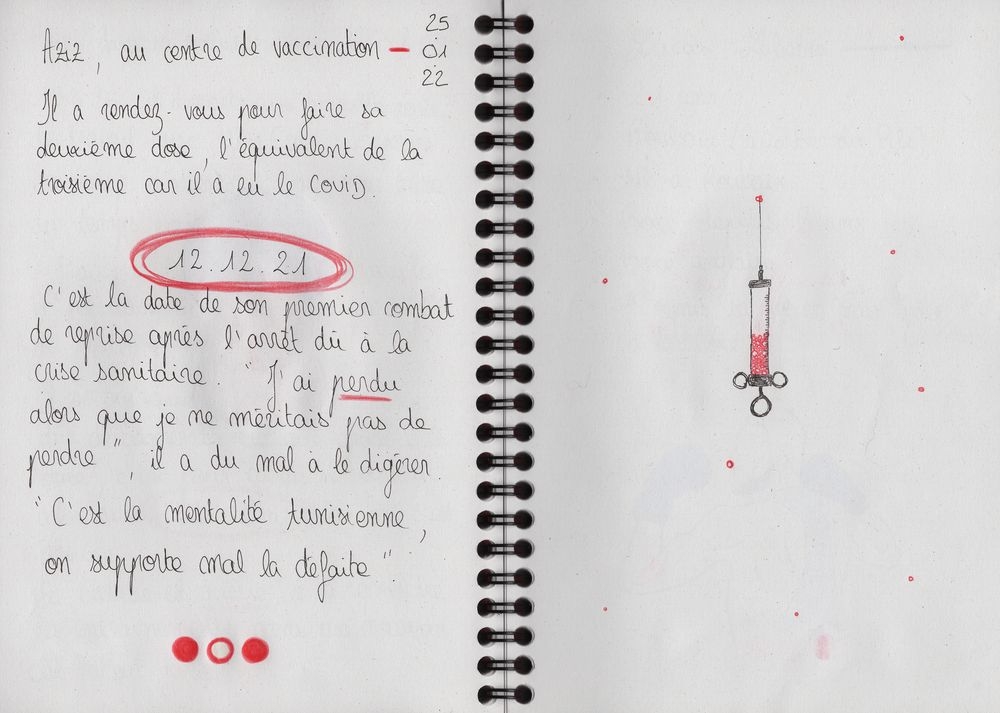 Aziz, au centre de vaccination – 25
01
22
Il a rendez-vous pour faire sa
deuxième dose, l'équivalent de la
troisième car il a eu le COVID.
12.12.21
C'est la date de son premier combat
de reprise après l'arrêt dû à la
crise sanitaire. "J'ai perdu
alors que je ne méritais pas de
perdre", il a du mal à le digérer.
"C'est la mentalité tunisienne,
on supporte mal la défaite".